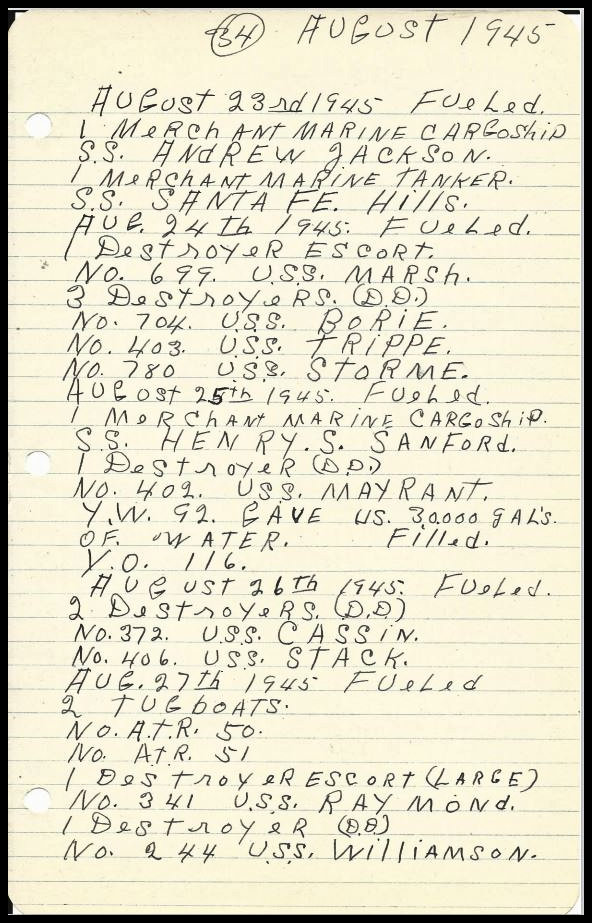 34 AUGUST 1945
AUGUST 23rd 1945 FUELED.
1 MERCHANT MARINE CARGOSHIP
S.S. ANDREW JACKSON.
1 MERCHANT MARINE TANKER.
S.S. SANTA FE. HILLS.
AUG. 24Th 1945. FUELED.
1 DESTROYER ESCORT.
NO. 699. U.S.S. MARSH.
3 DESTROYERS. (D.D.)
NO. 704. U.S.S. BORIE.
NO. 403. U.S.S. TRIPPE.
NO. 780 U.S.S. STORME.
AUGOST 25th 1945. FUELED.
1 MERCHANT MARINE CARGOSHIP.
S.S. HENRY.S. SANFORD.
1 DESTROYER (D.D.)
NO. 402. U.S.S. MAYRANT.
Y.W. 92. GAVE US. 30.000 GAL'S.
OF. WATER. Filled.
Y.O. 116.
AUGUST 26Th 1945. FUELED.
2 DESTROYERS. (D.D)
NO. 372. U.S.S. CASSIN.
NO. 406. U.S.S. STACK.
AUG. 27Th 1945 FUELED
2 TUGBOATS.
NO. A.T.R. 50.
NO. A.T.R. 51
1 DESTROYER ESCORT (LARGE)
NO. 341 U.S.S. RAYMOND.
1 DESTROYER (D.D)
NO. 244 U.S.S. WILLIAMSON.